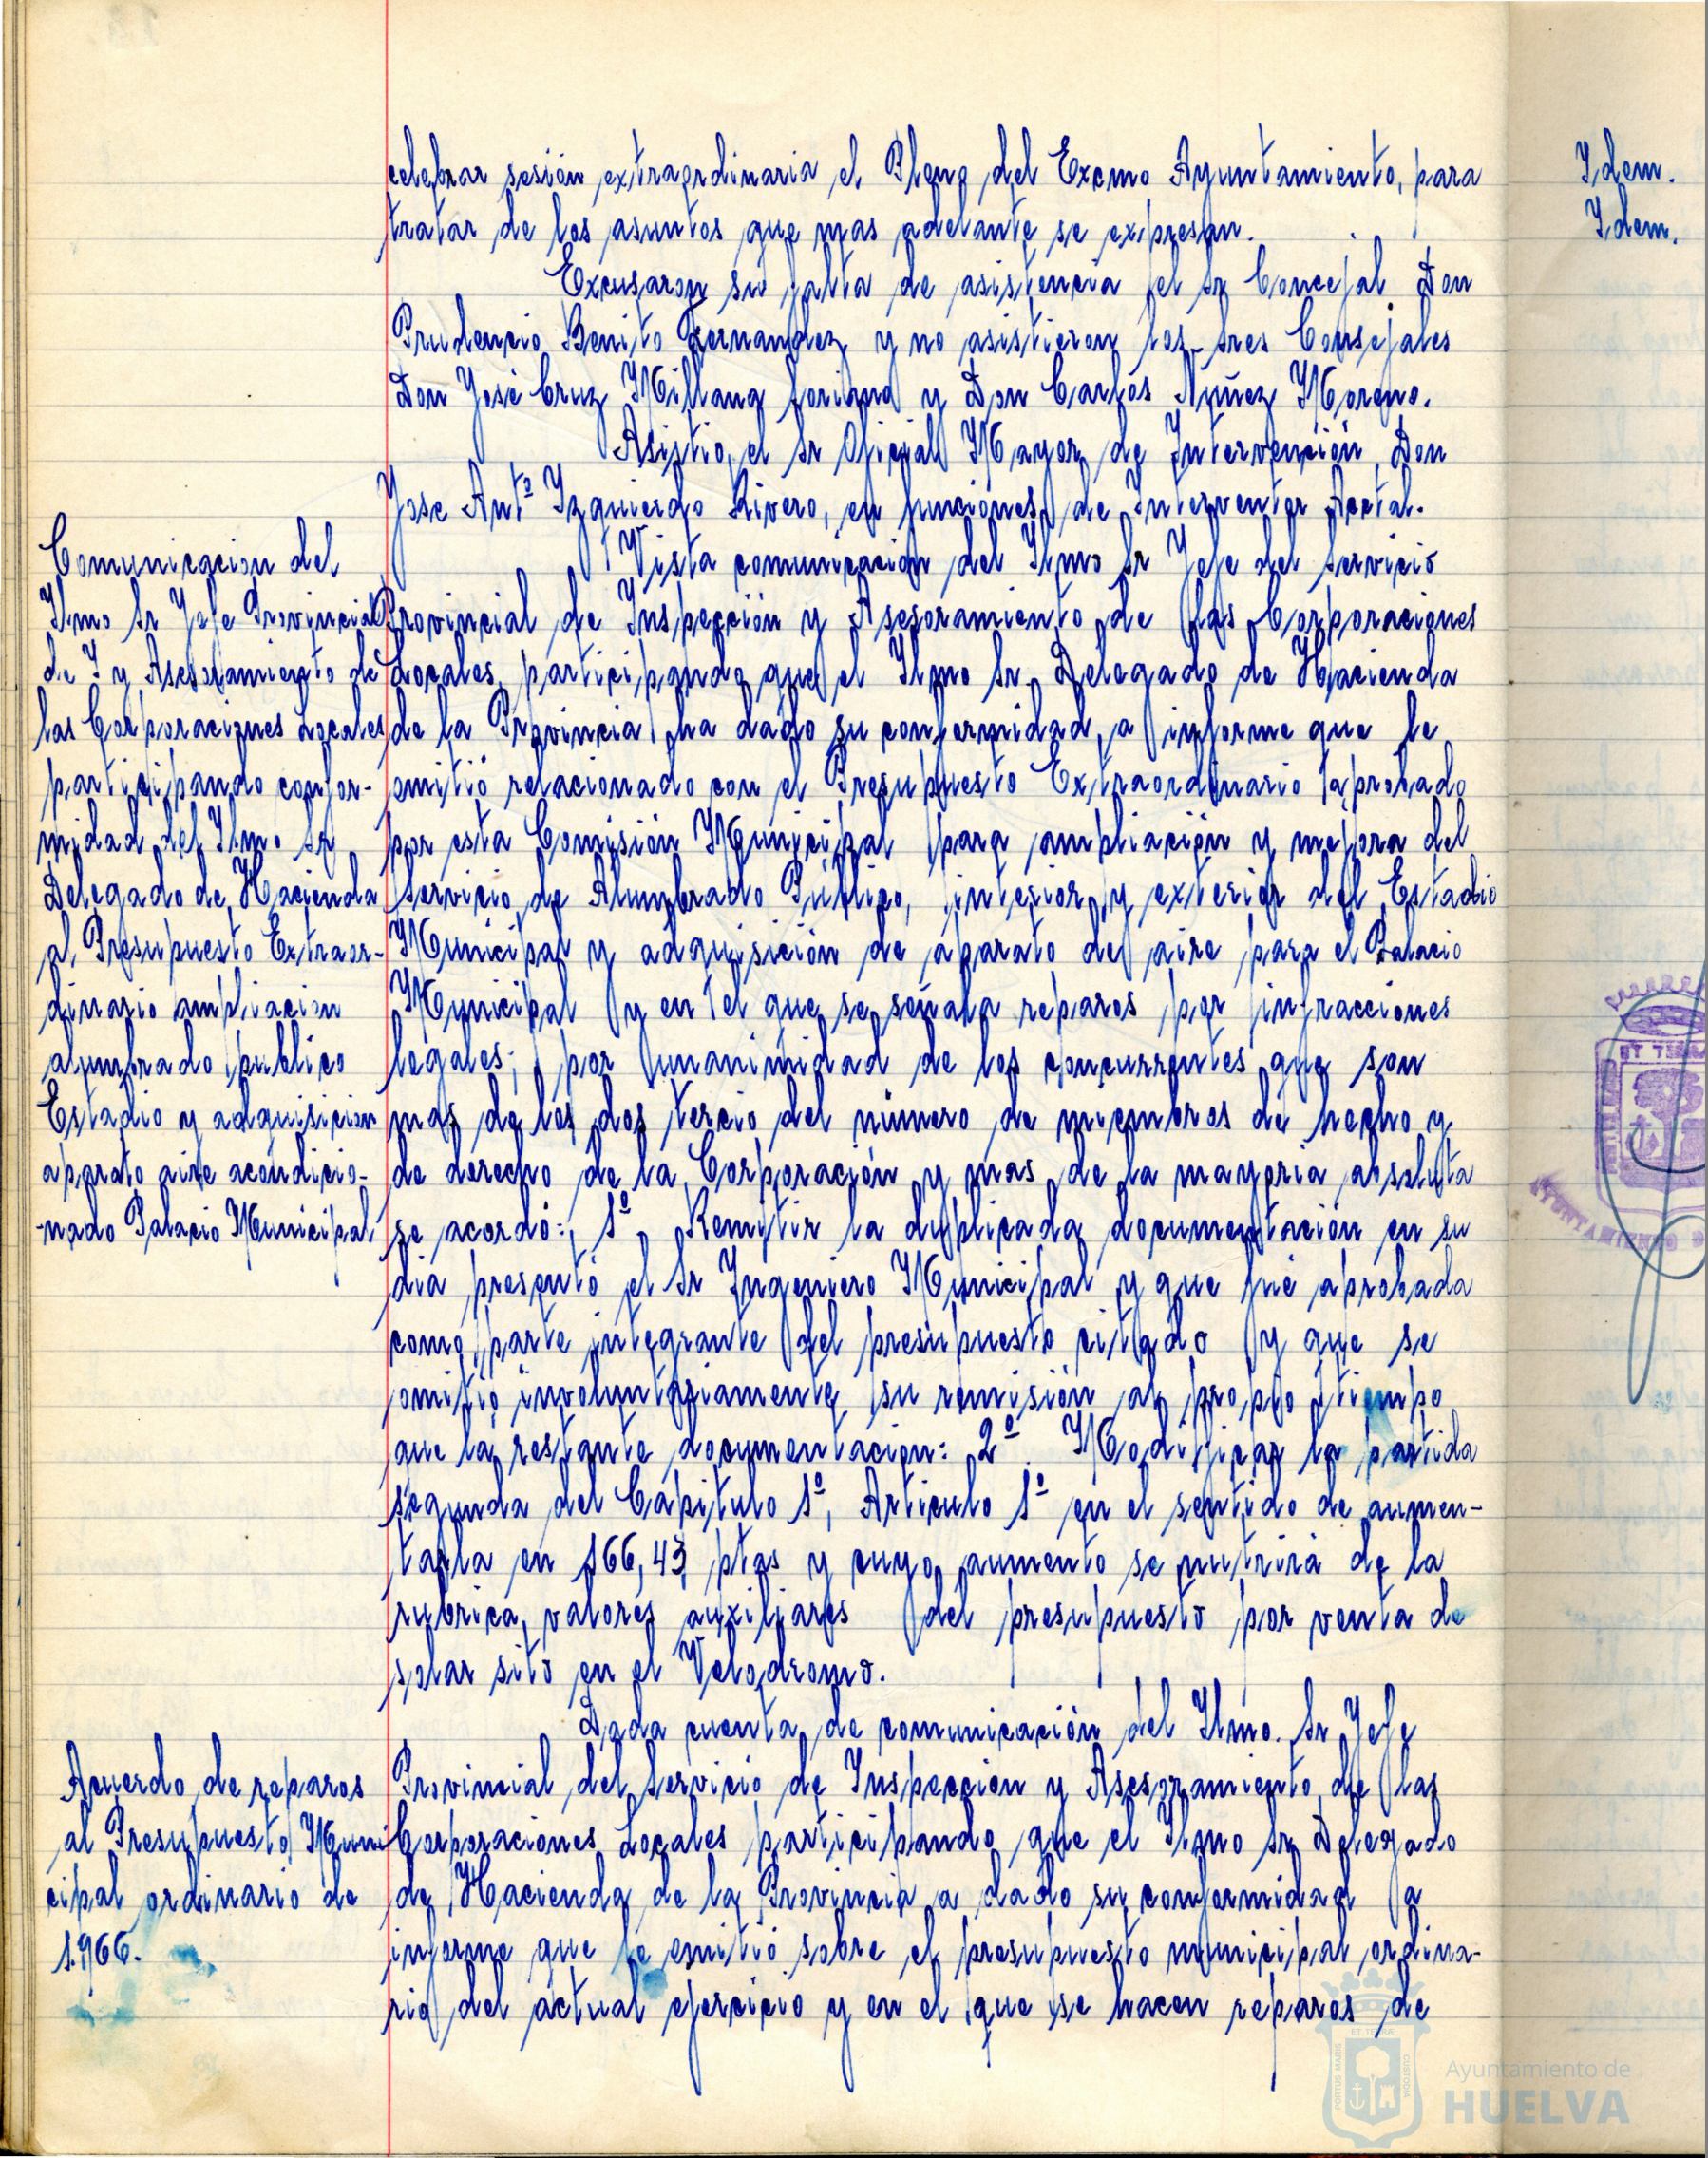 celebrar sesión extraordinaria el Pleno del Excmo Ayuntamiento, para
tratar de los asuntos que mas adelante se expresan.
Excusaron su falta de asistencia el Sr Concejal Don
Prudencio Benito Fernandez y no asistieron los Sres Consejales
Don José Cruz Millana Soriano y Don Carlos Nuñez Moreno.
Asistio, el Sr Oficial Mayor de Intervención, Don
Jose Antº Izquierdo Rivero, en funciones de Interventor Acctal.
Comunicacion del
Ilmo Sr Jefe Provincial
de I y Asesoramiento de
las Corporaciones Locales
participando confor-
midad del Ilmo Sr
Delegado de Hacienda
al Presupuesto Extraor-
dinario ampliacion
alumbrado publico
Estadio y adquisicion
aparato aire acondicio-
nado Palacio Municipal.
Vista comunicación del Ilmo Sr Jefe del Servicio
Provincial de Inspección y Asesoramiento de las Corporaciones
Locales, participando que el Ilmo Sr. Delegado de Hacienda
de la Provincia ha dado su conformidad, a informe que le
emitió relacionado con el Presupuesto Extraordinario aprobado
por esta Comisión Municipal para ampliación y mejora del
Servicio de Alumbrado Público, interior y exterior del Estadio
Municipal y adquisición de aparato de aire para el Palacio
Municipal y en el que se señala reparos por infracciones
legales; por unanimidad de los concurrentes que son
mas de los dos tercio del número de miembros de hecho y
de derecho de la Corporación y mas de la mayoria absoluta
se acordó: 1º Remitir la duplicada documentación en su
dia presentó el Sr Ingeniero Municipal y que fué aprobada
como parte integrante del presupuesto citado y que se
omitió involuntariamente su remisión al propio tiempo
que la restante documentacion: 2º. Modificar la partida
segunda del Capitulo 1º, Articulo 1º en el sentido de aumen-
tarla en 166,43 ptas y cuyo aumento se nutrirá de la
rubrica, valores auxiliares del presupuesto por venta de
solar sito en el Velodromo.
Acuerdo de reparos
al Presupuesto Muni
cipal ordinario de
1.966.
Dada cuenta de comunicación del Ilmo. Sr Jefe
Provincial del Servicio de Inspección y Asesoramiento de las
Corporaciones Locales participando que el Ilmo Sr Delegado
de Hacienda de la Provincia a dado su conformidad a
informe que le emitió sobre el presupuesto municipal ordina-
rio del actual ejercicio y en el que se hacen reparos de
Idem.
Idem.
AYUNTAMIENTO
Ayuntamiento de
HUELVA